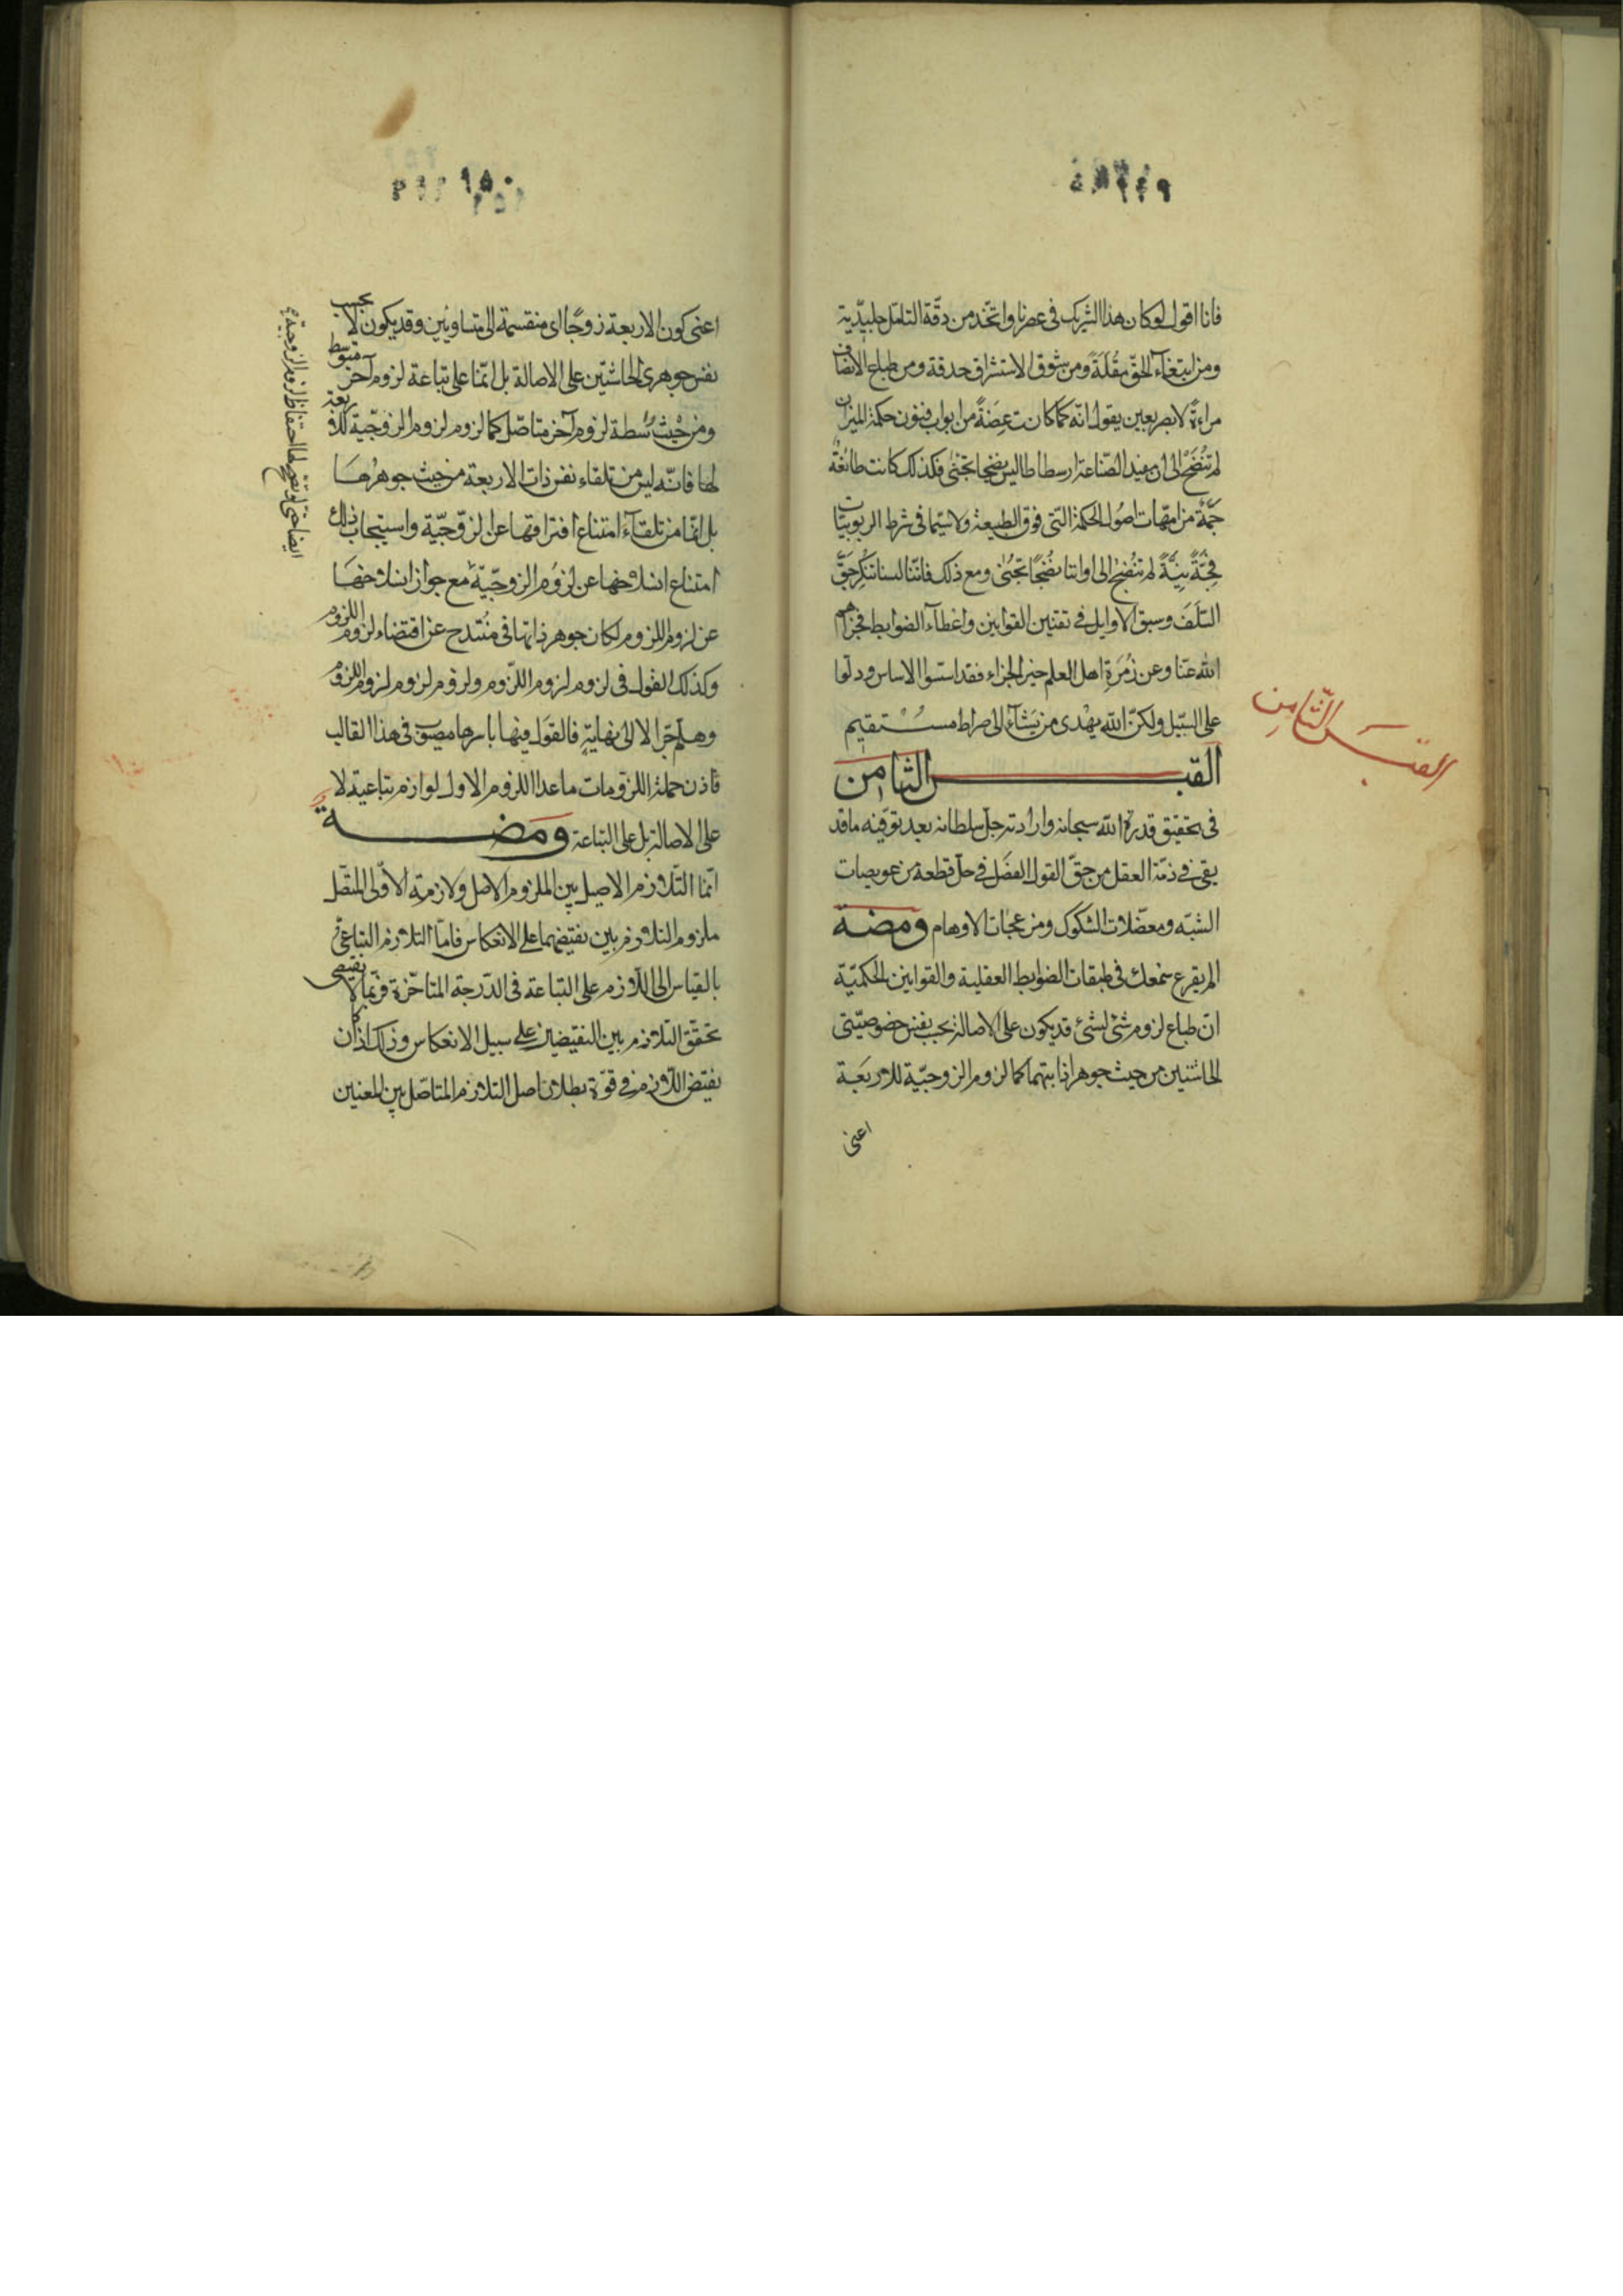 ٢٤٩
فانا اقول لو كان هذا الشريك فى عصرنا واتخذ من دقة التامل جليدية
ومن ابتغاء الحق مقلة ومن شوق الاستشراق حدقة ومن طباع الانصاف
مراءة لابصر بعين يقول انه كما كانت من ابواب فنون حكمة الميزان
لم تنضج الى ان مفيد الصناعة ارسطاطاليس نضجا يجتنى فكذلك كانت طائفة
جمة من امهات اصول الحكمة التى فوق الطبيعة ولا سيما فى شرط الربوبيات
فجة نيئة لم تنضج الى اواننا نضجا يجتنى ومع ذلك فاننا لسنا ننكر حق
السلف وسبق الاوايل فى تقنين القوانين واعطاء الضوابط فجزاهم
الله عنا وعن زمرة اهل العلم خير الجزاء فقد اسسوا الاساس ودلوا
على السبيل ولكن الله يهدى من يشاء الى صراط مستقيم
القبس الثامن
القبس الثامن
فى تحقيق قدرة الله سبحانه وارادته جل سلطانه بعد توفيته ما قد
بقى فى ذمة العقل من حق القول الفصل فى حل قطعة من عويصات
الشبه ومعضلات الشكوك ومن عجات الاوهام ومضة
الم يقرع سمعك فى طبقات الضوابط العقلية والقوانين الحكمية
ان طباع لزوم شئ لشئ قد يكون على الاصالة بحسب نفس خصوصيتى
الحاشيتين من حيث جوهر ذاتيهما كما لزوم الزوجية للاربعة
اعنى
٢٥٠
اعنى كون الاربعة زوجا اى منقسمة الى متساويين وقد يكون لا بحسب
نفس جوهرى الحاشيتين على الاصالة بل انما على تباعة لزوم آخر متوسط
ومن حيث وسطة لزوم آخر متاصل كما لزوم لزوم الزوجية للاربعة
لها فانه ليس من تلقاء نفس ذات الاربعة من حيث جوهرها
بل انما من تلقاء امتناع افتراقها عن الزوجية واستيجاب ذلك
امتناع انسلاخها عن لزوم الزوجية مع جواز انسلاخها
عن لزوم اللزوم لكان جوهر ذاتها فى منتدح عن اقتضاء لزوم اللزوم
وكذلك القول فى لزوم لزوم اللزوم ولزوم لزوم لزوم اللزوم
وهلم جرا لا الى نهاية فالقول فيها باسرها مصبوب فى هذا القالب
فاذن جملة اللزومات ما عدا اللزوم الاول لوازم تباعية لا
على الاصالة بل على التباعة ومضة
انما التلازم الاصيل بين الملزوم الاصل ولازمه الاولى المتصل
ملزوم التلازم بين نقيضهما على الانعكاس فاما التلازم التباعى
بالقياس الى اللازم على التباعة فى الدرجة المتاخرة فربما لا يقتضى
تحقق التلازم بين النقيضين على سبيل الانعكاس وذلك اذا كان
نقيض اللازم فى قوة بطلان اصل التلازم المتاصل بين المعنيين
ايضا حتى لو تصحح لها احتفاظ لزوم الزوجية